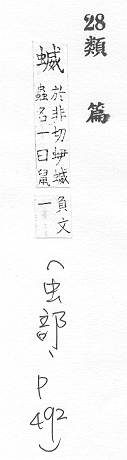 28類 篇
蝛
於非切蛜蝛
蟲名一曰鼠
負文
一
(虫部、P492)